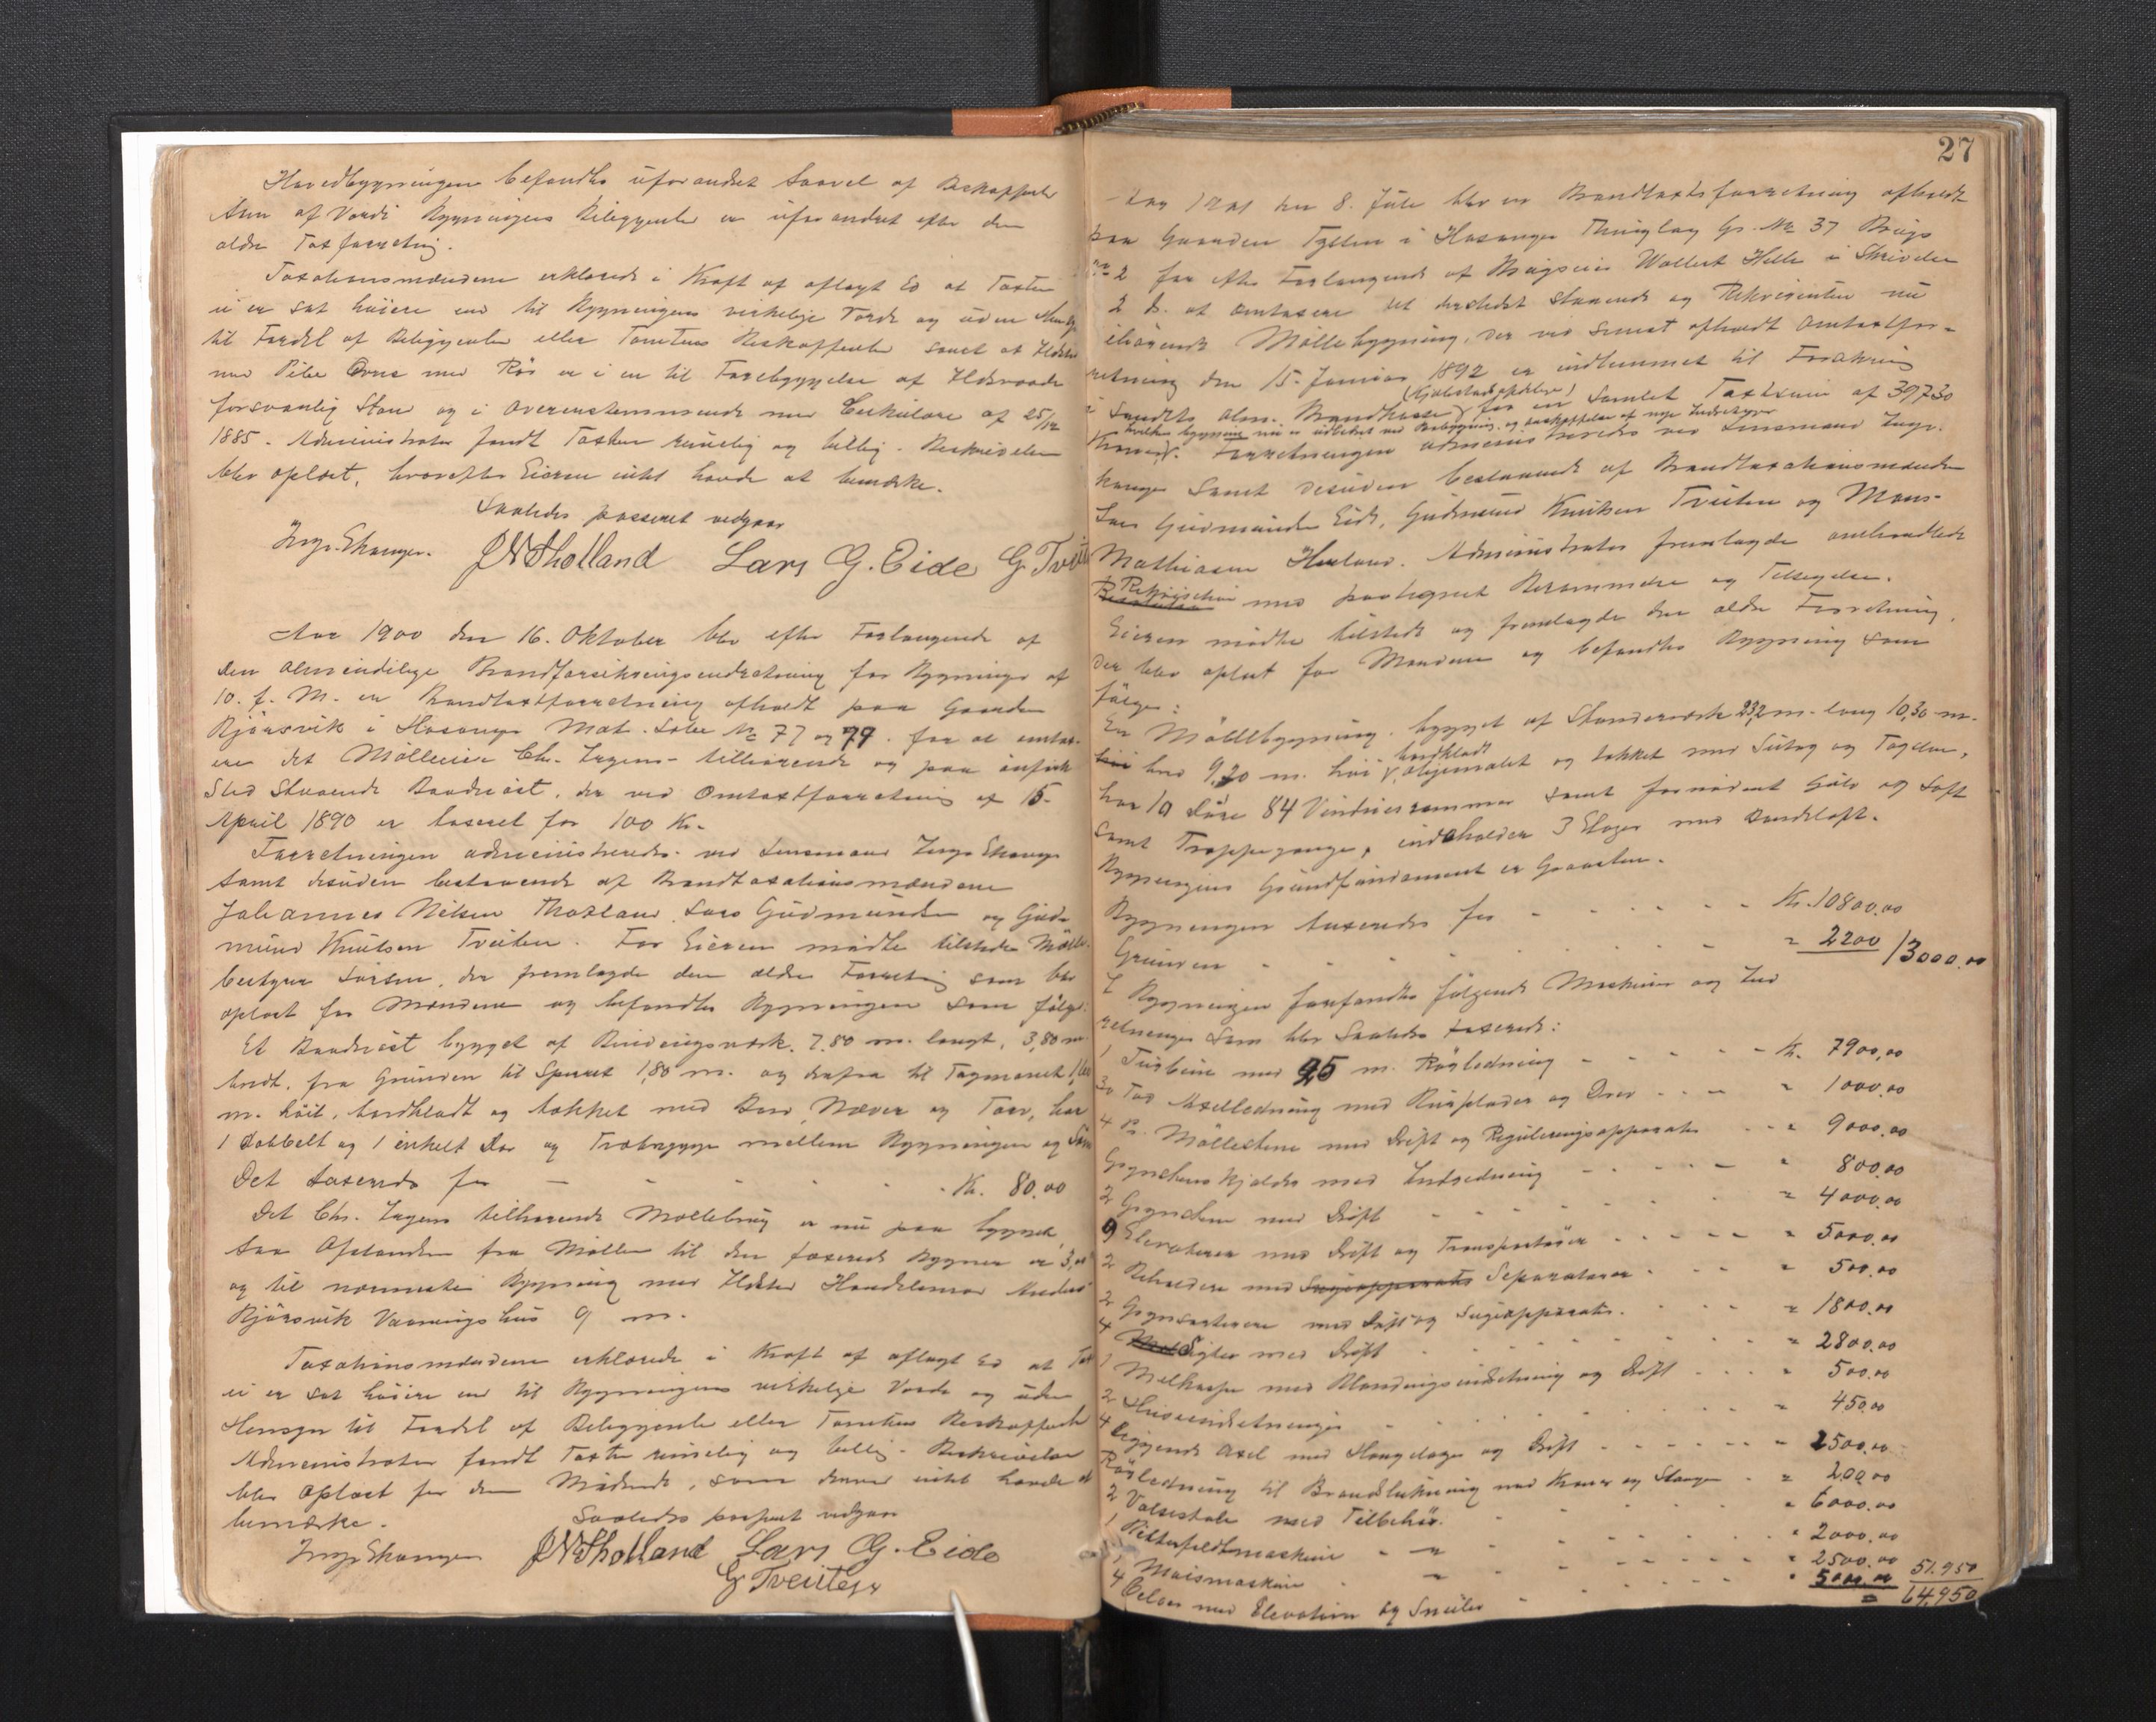 Hovedbygningen befandtes uforandret saavel af Beskaffenhed
som af Værdi Bygningens Beliggenhed er uforandret efter den
ældre Taxforretning.
Taxationsmændene erklærede i Kraft af aflagt Ed at Taxten
ei er sat høiere end til Bygningens virkelige Værdi og uden Hensyn
til Fordel af Beliggenhed eller Tomtens Beskaffenhed samt at Ildsted
med Pibe Ovne med Rør er i en til Forebyggelse af Ildsvaade
forsvarlig Stand og i Overensstemmende med Cirkulære af 25/12
1885. Administrator fandt Taxten rimelig og billig. Beskrivelsen
blev oplæst, hvorefter Eieren intet havde at bemærke.
Saaledes passeret vedgaar
Inge Ekanger. J N Tholland Lars G. Eide G Tveit
Aar 1900 den 16. Oktober blev efter Forlangende af
den almindelige Brandforsikringsindretning for Bygninger af
10. f. M. en Brandtaxtforretning afholdt paa Gaarden
Bjørsvik i Hosanger Mat. Løbe No 77 og 79. for at omtax-
ere det Mølleeier Chr. Irgens tilhørende og paa anførte
Sted staaende Baadnøst, der ved Omtaxtforretning af 15.
April 1890 er taxeret for 100 Kr.
Forretningen administreredes ved Lensmand Inge Ekanger
samt desuden bestaaende af Brandtaxationsmændene
Johannes Nilsen Tholland, Lars Gudmundsen og Gud-
mund Knutsen Tveiten. For Eieren mødte tilstede Mølle-
bestyrer Larsen, der fremlagde den ældre Forretning som blev
oplæst for Mændene og befandtes Bygningen som følger:
Et Baadnøst bygget af Bindingsværk 7.80 m. langt, 3,80 m
bredt, fra Grunden til Sperret 1,80 m. og derfra til Tagmønet 1,60
m. høit, bordklædt og tækket med Bord, Næver og Torv, har
1 dobbelt og 1 enkelt Dør og Træbrygge mellem Bygningen og Søen
Det taxeredes for — - - - - Kr. 80.00
Det Chr. Irgens tilhørende Møllebrug er nu paa bygget
saa Afstanden fra Møllen til den taxerede Bygning er 3,00
og til nærmeste Bygning med Ildsted Handelsmand Anders
Bjørsvik Vaaningshus 9 m.
Taxationsmændene erklærede i Kraft af aflagt Ed at Tax
ei er sat høiere end til Bygningens virkelige Værdi og uden
Hensyn til Fordel af Beliggenhed eller Tomtens Beskaffenhed
Administrator fandt Taxten rimelig og billig. Beskrivelsen
blev oplæst for den Mødende, som derved intet havde at
bemærke.
Saaledes passeret vedgaar
Inge Ekanger J N Tholland Lars G. Eide
G Tveiten
27
Aar 1901 den 8. Juli blev en Brandtaxtsforretning afholdt
paa Gaarden Tysse i Hosanger Thinglag Gr. No 37 Brugs
No 2 for efter Forlangende af Brugseier Wollert Hille i Skrivelse
2 d. at omtaxere det dersteds staaende og Rekvirenten nu
tilhørende Møllebygning, der ved senest afholdt Omtaxtfor-
retning den 15. Januar 1892 er indlemmet til Forsikring
i Landets alm. Brandkasse (Kjøbstadafdelen) for en samlet Taxtsum af 39730
Kroner. hvilken bygning nu er udvidet ved Paabygning og anskaffelse af nye Indretninger
Forretningen administreredes ved Lensmand Inge
Ekanger samt desuden bestaaende af Brandtaxationsmændene
Lars Gudmundsen Eide, Gudmund Knutsen Tveiten og Mons
Mathiasen Herland. Administrator fremlagde omhandlede
Rekvisition med paategnet Berammelse og Tilsigelse.
Eieren mødte tilstede og fremlagde den ældre Forretning,
der blev oplæst for Mændene og befandtes Bygning som
følger:
En Møllebygning. bygget af Standerværk 23,2 m. lang 10,30 m.
bred 9,20 m. høi, bordklædt oliemalet og tækket med Sutag og Tagsten,
har 10 Døre 84 Vinduesrammer samt fornødent Gulv og Loft
samt Trappegange, indeholder 3 Etager med Mørkloft.
Bygningens Grundfundament er Graasten.
Bygningen taxeredes for - - - - Kr. 10800.00
Grunden - - - - - " 2200 13000.00
I Bygningen forefandtes følgende Maskiner og Ind
retninger som blev saaledes taxerede:
1 Turbine med 95 m. Rørledning - - - - Kr. 7900,00
30 Fod Axelledning med Remskiver og Drev - - - " 1000.00
4 Pr. Møllestene med Drift og Reguleringsapparater - - " 9000.00
Grynhuskjælder med Indredning - - - - " 800.00
2 Grynstene med Drift - - - - " 4000.00
9 Elevatorer med Drift og Transportører - - - - " 5000.00
2 Rensere med Sugeapparater Separatorer - - - " 500.00
2 Grynsorterere med Drift og Sugeapparater. - - - " 1800.00
4 Sigter med Drift - - - - " 2800.00
1 Melkasse med Blandingsindretning og Drift - - - " 500.00
2 Heiseindretninger - - - - " 450.00
4 liggende Axel med Hængelager og Drift - - - - " 2500.00
Rørledning til Brandslukning med Kraner og Slanger - " 200.00
2 Valsestole med Tilbehør. - - - - " 6000.00
1 Filterfeldtmaskine - " - - - " 2000.00
1 Maismaskine - " - - - - " 2500.00 51.950
4 Celoer med Elevatorer og Snekker - - - - " 5000.00 = 64,950